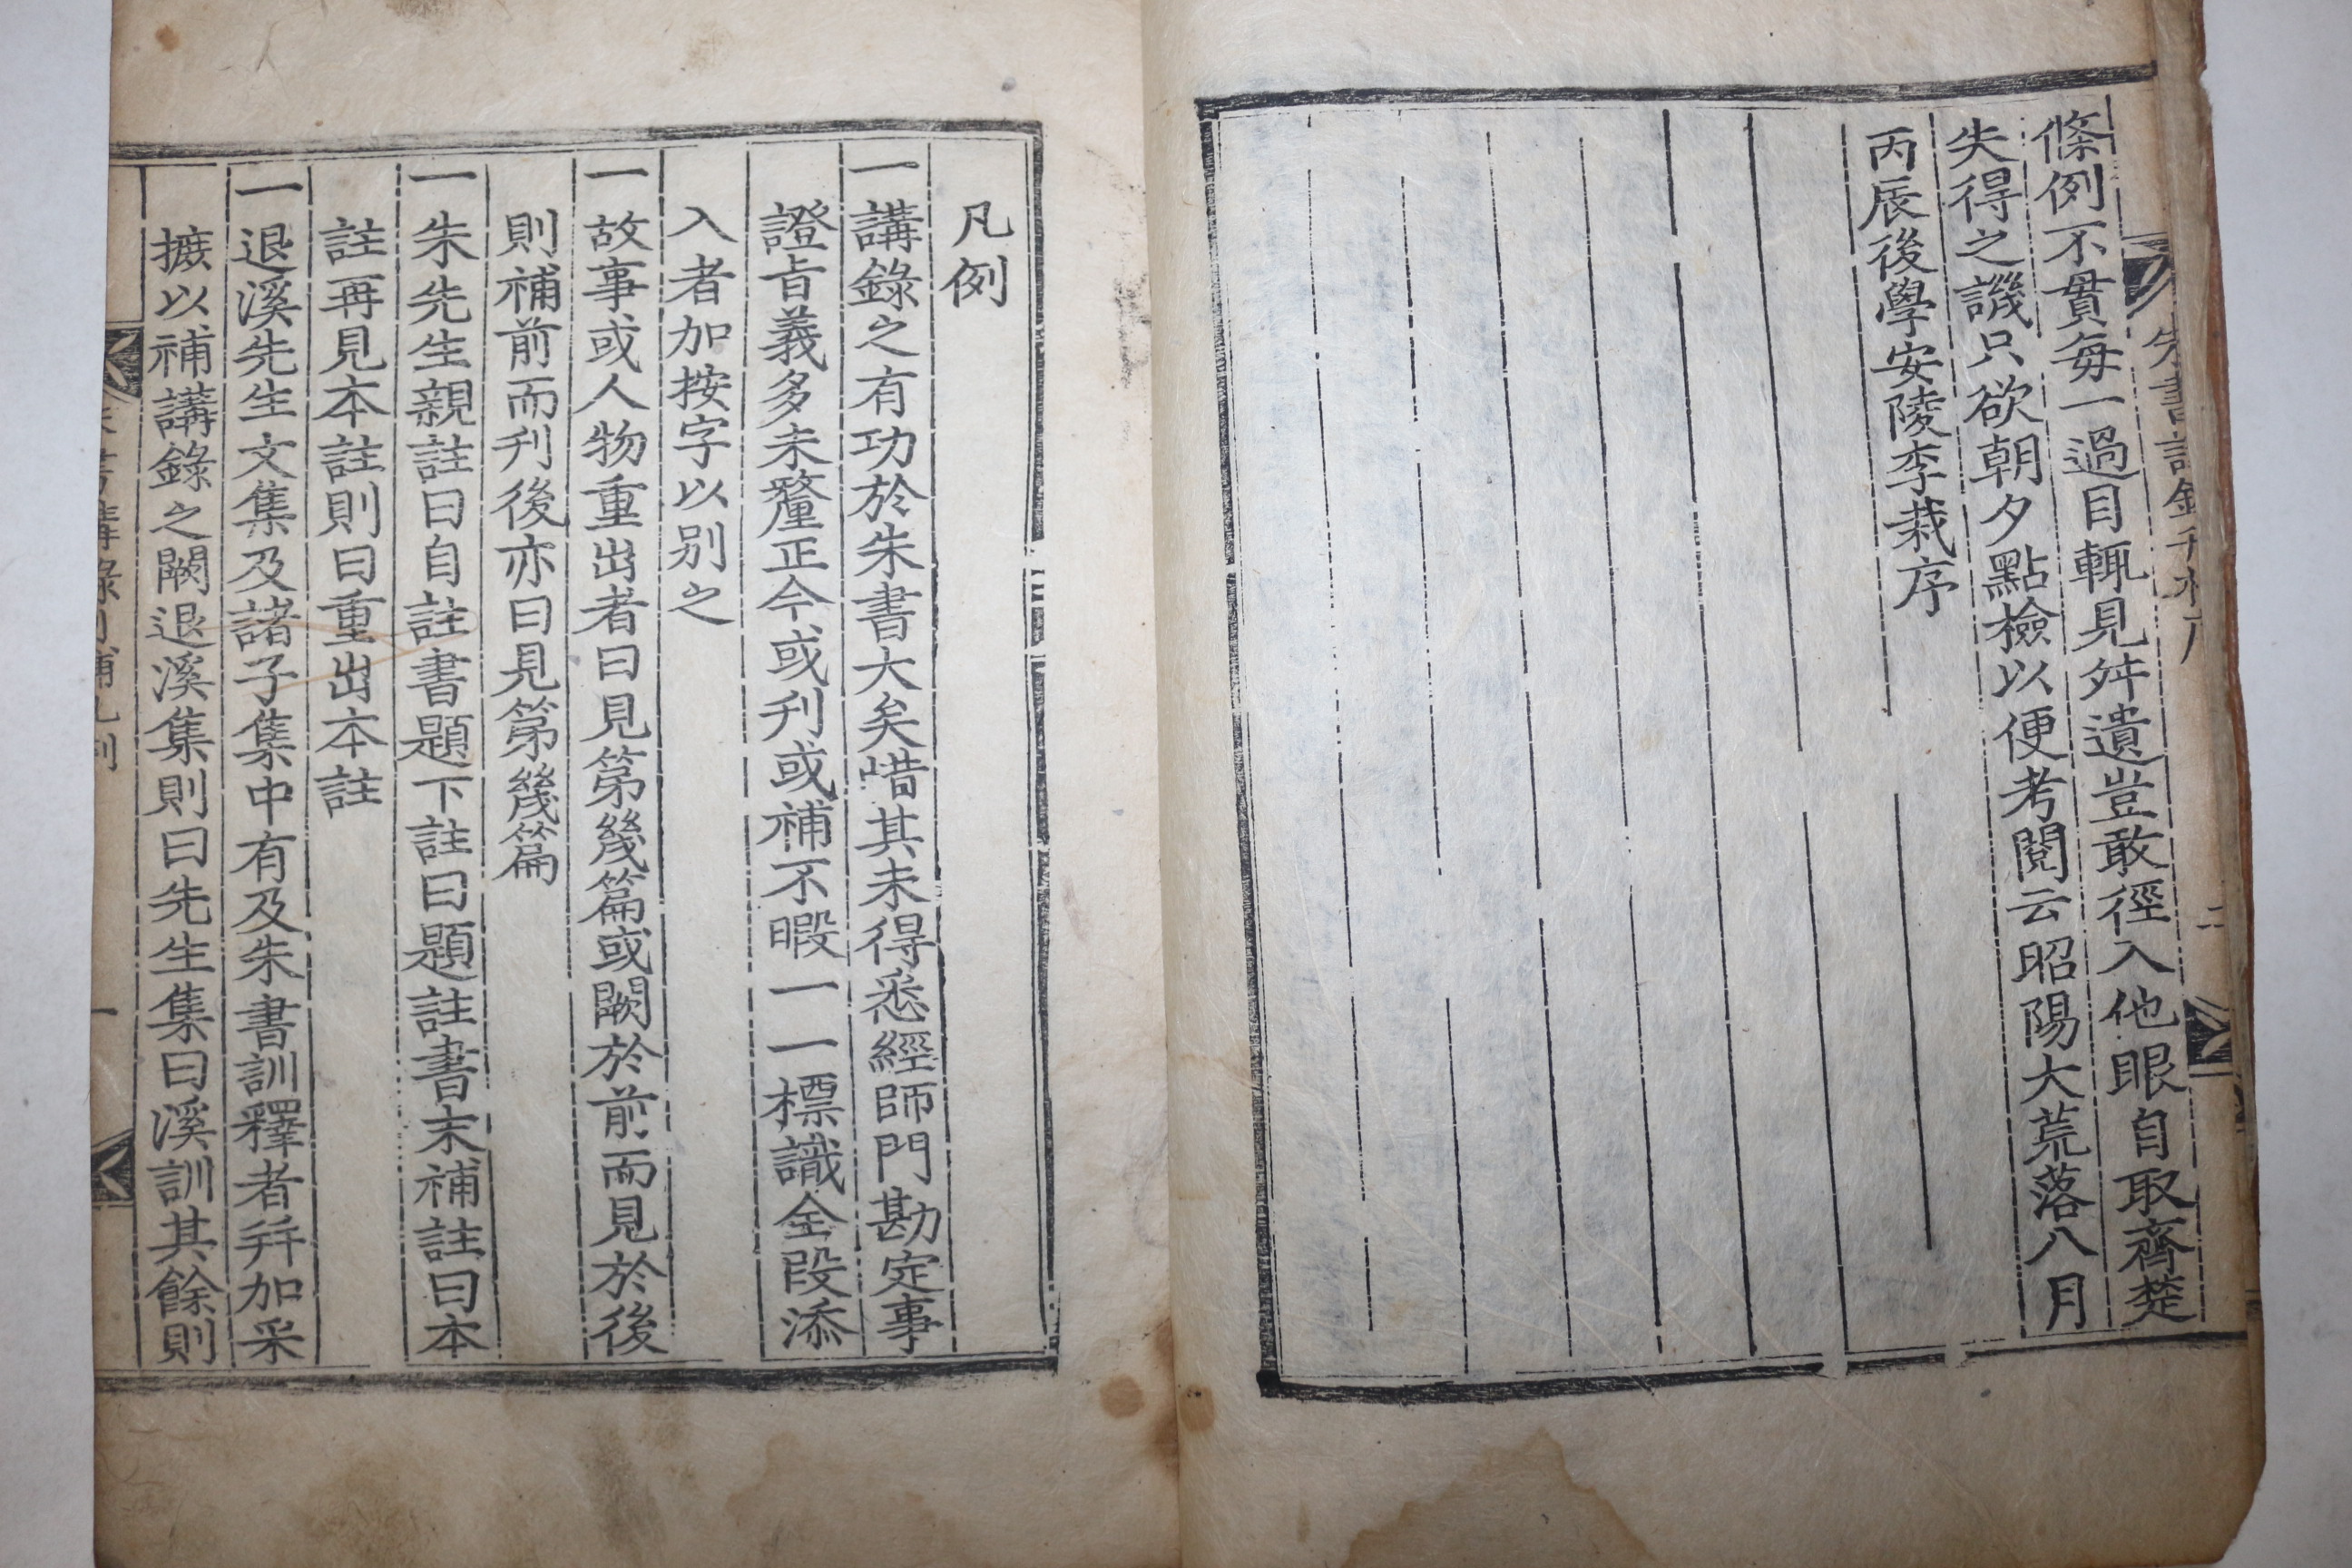 條例不貫每一過目輒見舛遺豈敢徑入他眼自取齊楚
失得之譏只欲朝夕點檢以便考閱云昭陽大荒落八月
丙辰後學安陵李栽序
凡例
一講錄之有功於朱書大矣惜其未得悉經師門勘定事
證旨義多未釐正今或刋或補不暇一一標識全段添
入者加按字以別之
一故事或人物重出者曰見第幾篇或闕於前而見於後
則補前而刋後亦曰見第幾篇
一朱先生親註曰自註書題下註曰題註書末補註曰本
註再見本註則曰重出本註
一退溪先生文集及諸子集中有及朱書訓釋者幷加采
摭以補講錄之闕退溪集則曰先生集曰溪訓其餘則